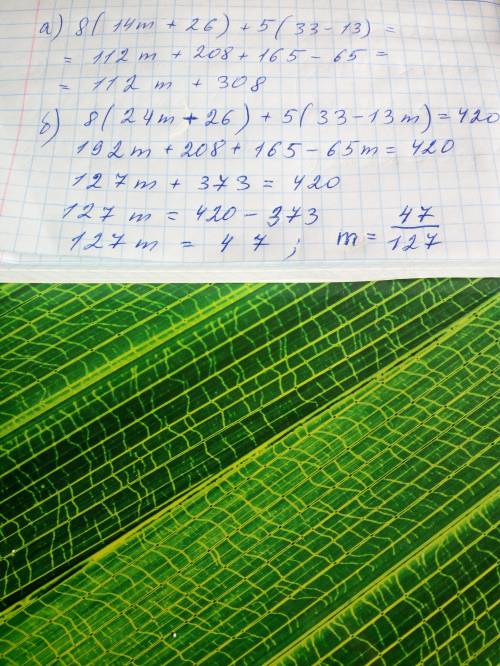 а) 8(14m + 26) + 5(33-13) =
= 112m + 208 + 165 - 65 =
= 112 m + 308
б) 8(24m + 26) + 5(33-13m) = 420
192m + 208 + 165 - 65m = 420
127m + 373 = 420
127 m = 420 - 373
127m = 47; m = 47/127